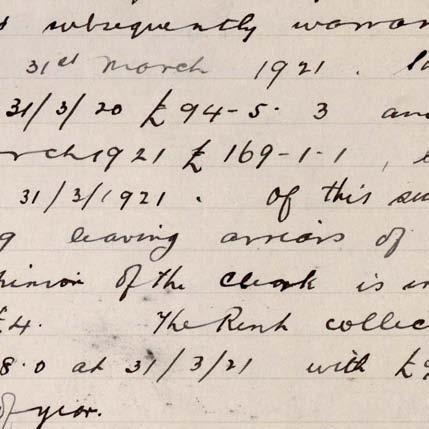 subsequently warran
31st March 1921.
31/3/20 £94-5-3 and
rch 1921 £169-1-1,
31/3/1921. Of this su
g leaving arrears of
pinion of the Clerk is
£4. The Rent collec
8.0 at 31/3/21 with £
of year.